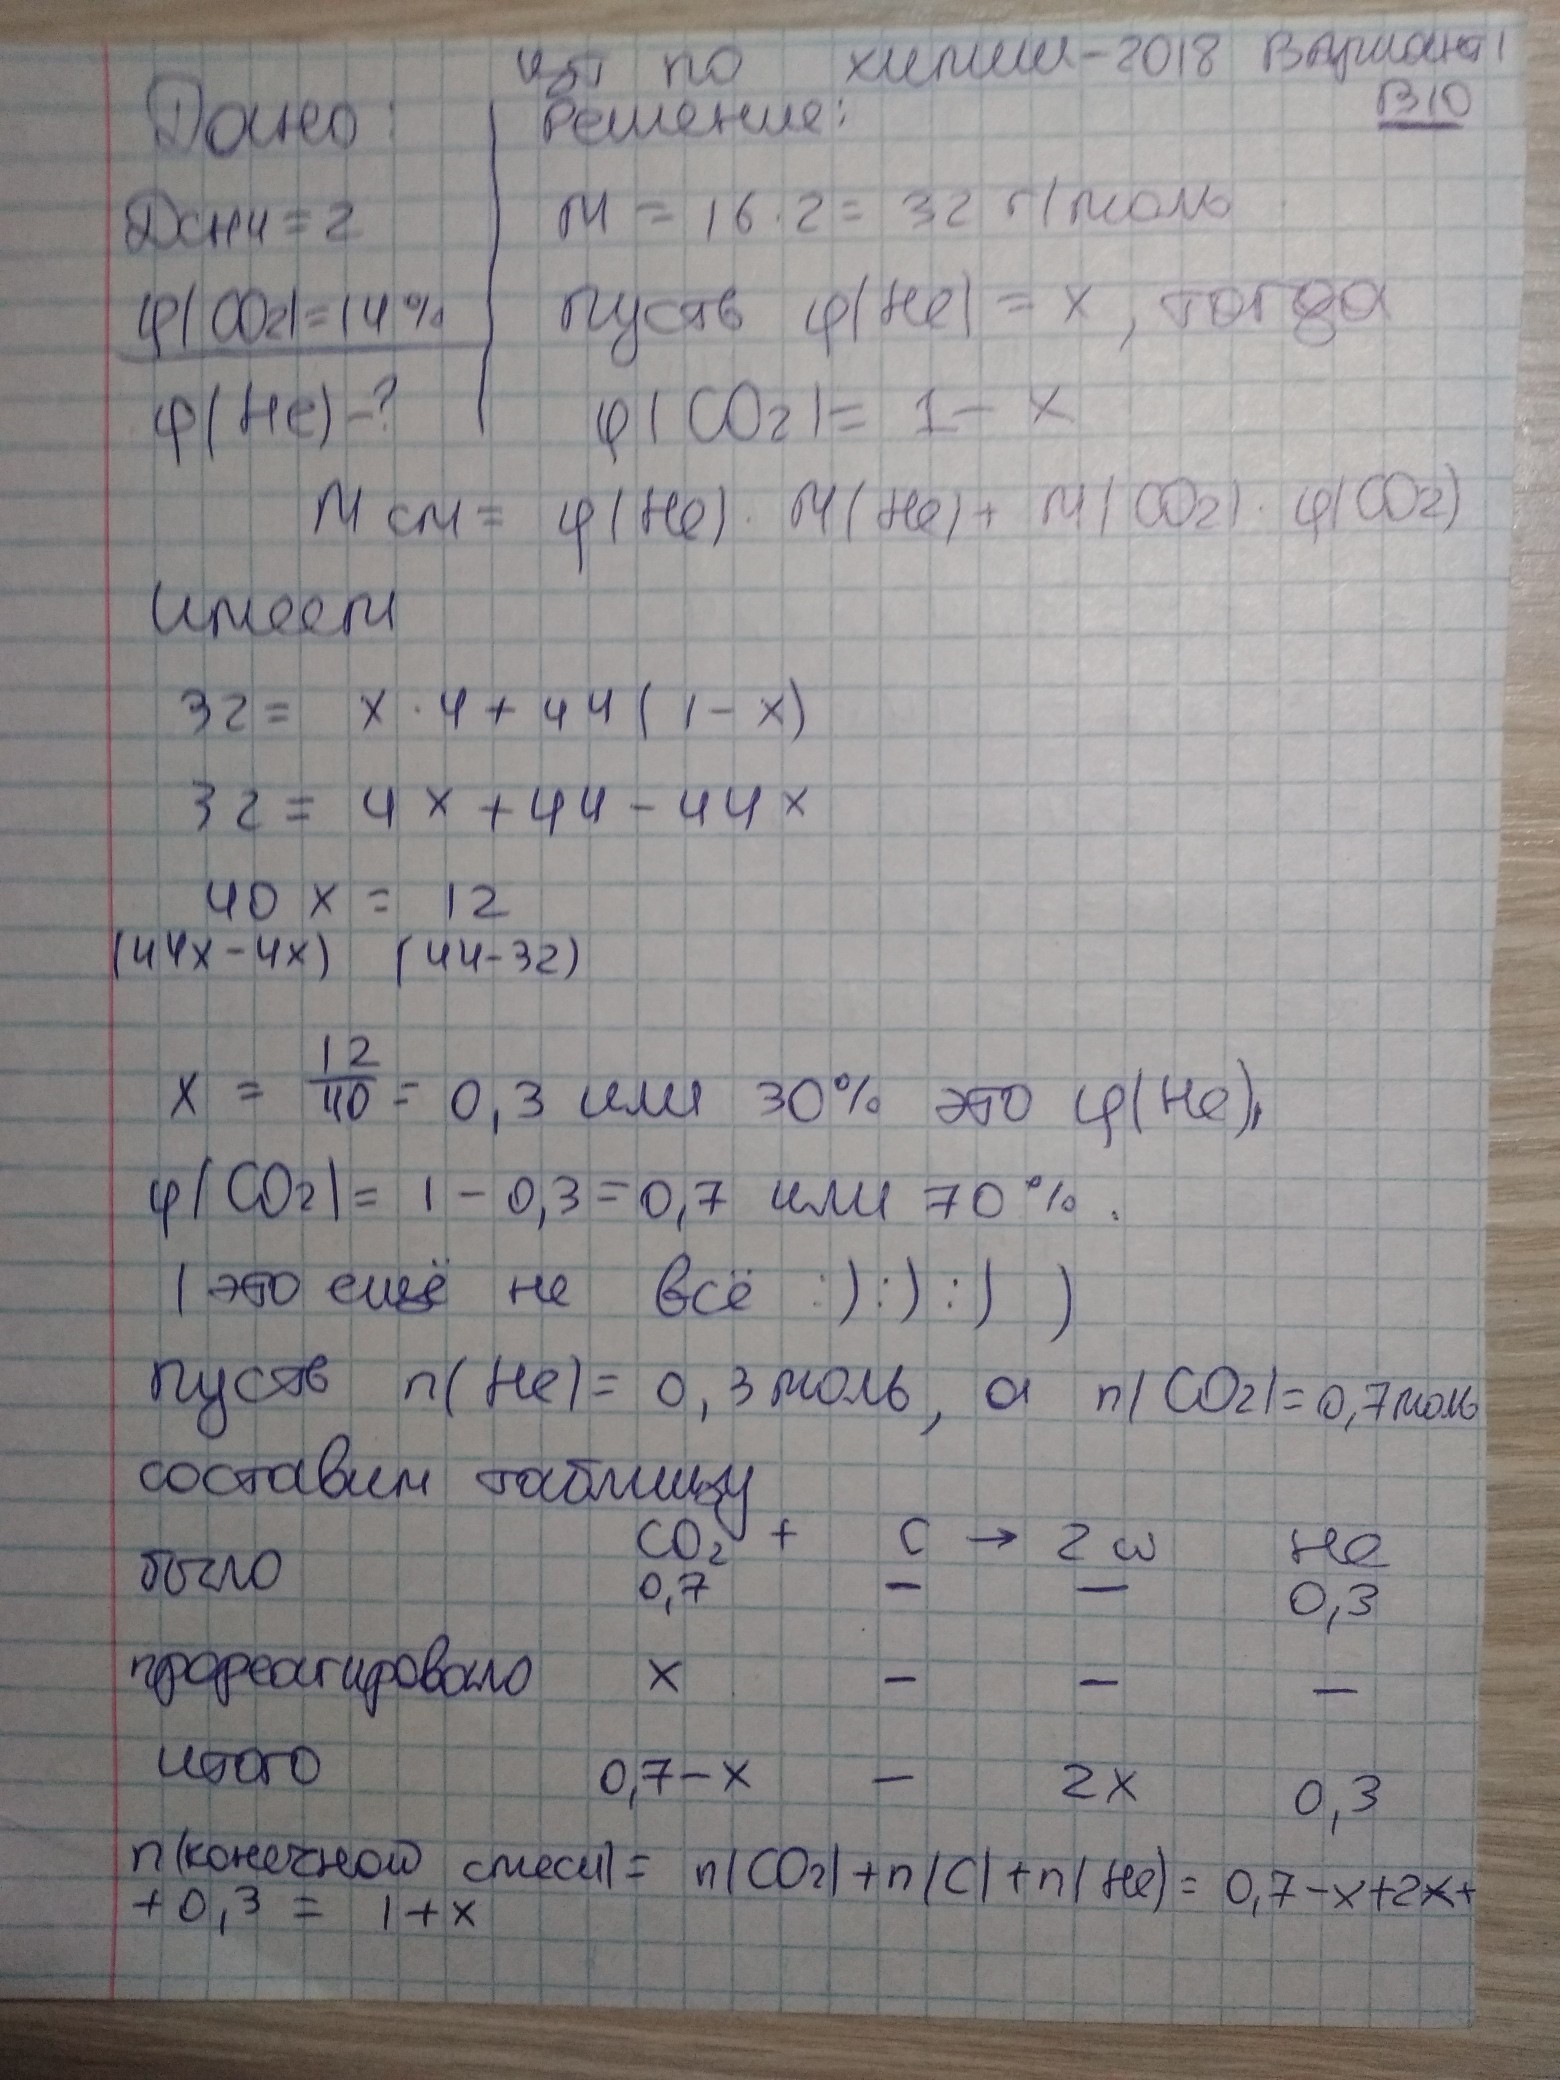 ЦТ по химии-2018 Вариант 1
В10
Дано:
Решение:
DCH4 = 2
φ(CO2) = 14%
φ(He) - ?
M = 16 · 2 = 32 г/моль
пусть φ(He) = x, тогда
φ(CO2) = 1 - x
M см = φ(He) · M(He) + M(CO2) · φ(CO2)
имеем
32 = x · 4 + 44(1 - x)
32 = 4x + 44 - 44x
40x = 12
(44x - 4x) (44-32)
x = 12/40 = 0,3 или 30% это φ(He),
φ(CO2) = 1 - 0,3 = 0,7 или 70%.
(это ещё не всё :) :) :) )
пусть n(He) = 0,3 моль, а n(CO2) = 0,7 моль
составим таблицу
CO2 + C → 2CO He
было 0,7 — — 0,3
прореагировало x — — —
итого 0,7-x — 2x 0,3
n(конечной смеси) = n(CO2) + n(C) + n(He) = 0,7-x+2x+
+0,3 = 1+x